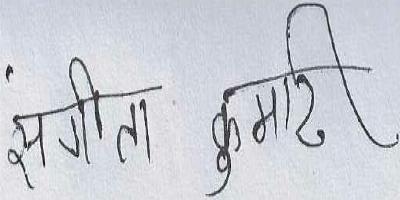 संगीता कुमारी